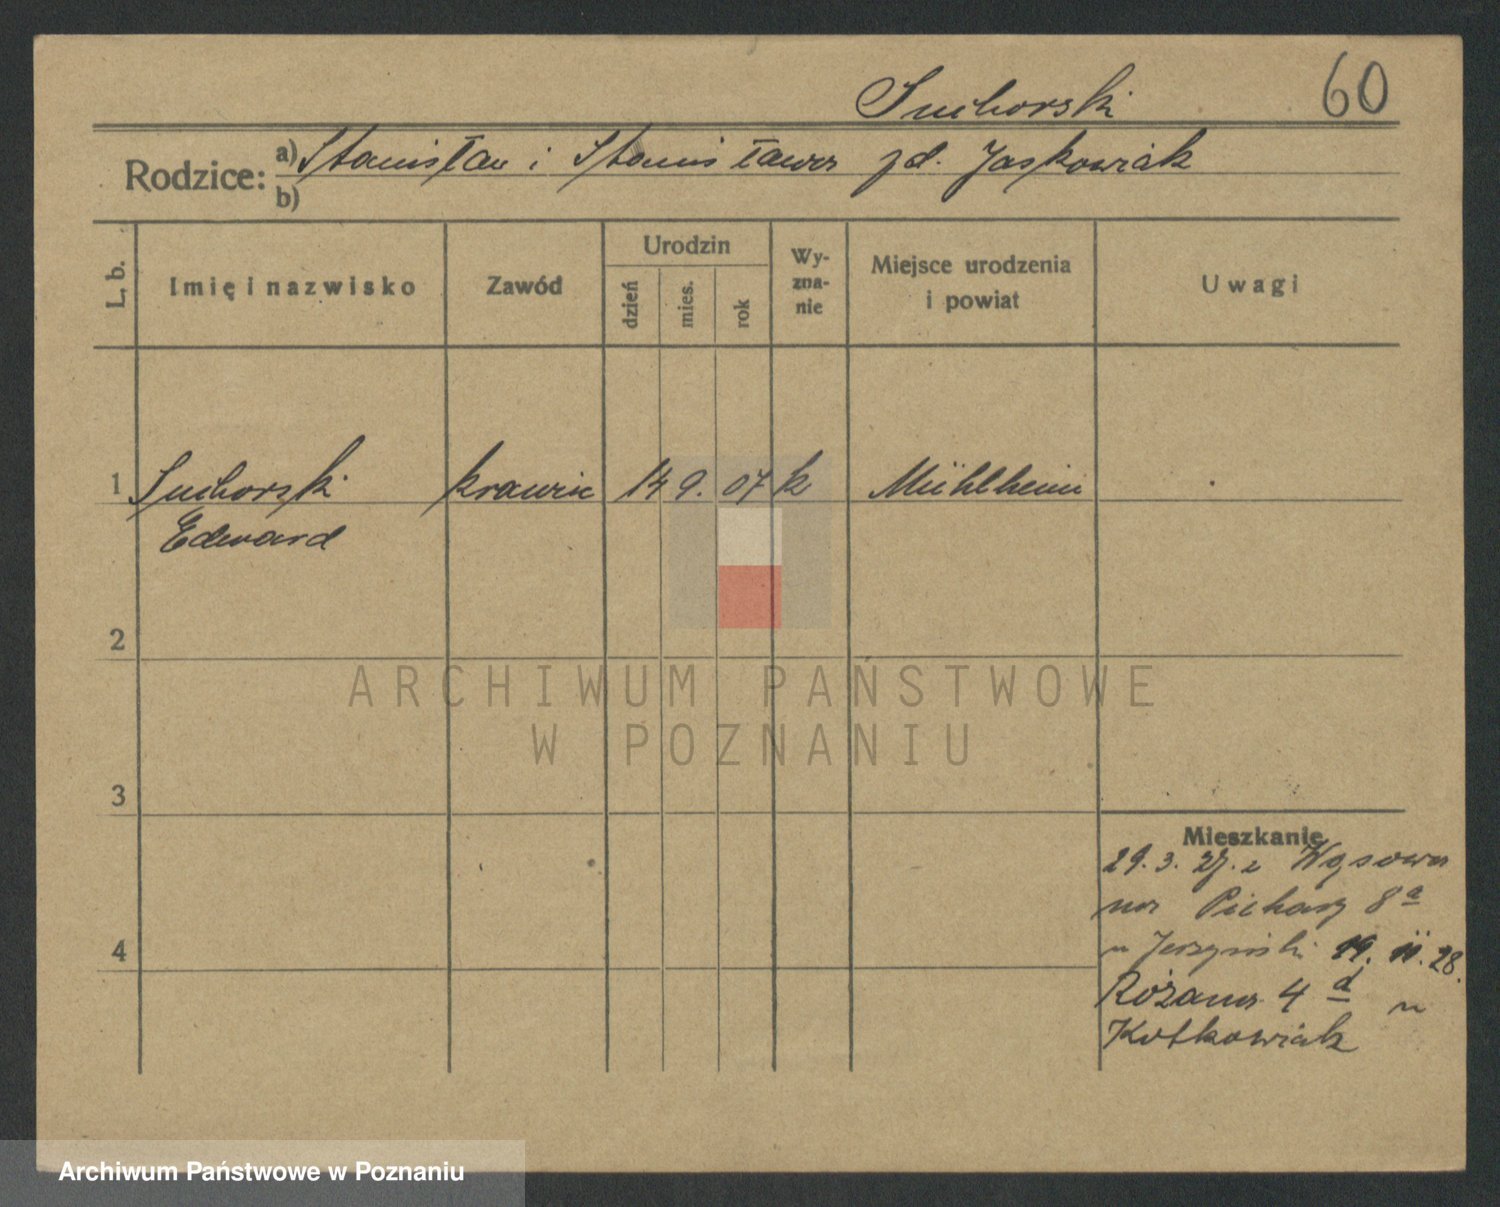 Suchorski 60
Rodzice: a) Stanisław i Stanisława zd. Jaskowiak
b)
L. b. Imię i nazwisko Zawód Urodzin dzień mies. rok Wyznanie Miejsce urodzenia i powiat Uwagi
1 Suchorski krawiec 14 9. 07 k Mühlheim
Edward
2
ARCHIWUM PAŃSTWOWE
W POZNANIU
3
Mieszkanie
29. 3. 27. z
na Piekary 8a
4
u 19. 11. 28.
Różana 4 d u
Kotkowiak
Archiwum Państwowe w Poznaniu